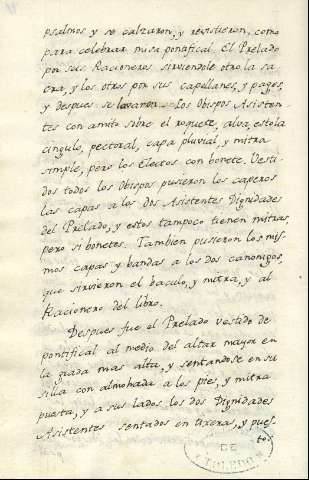 psalmos y se calzaron, y revistieron, como
para celebrar misa pontifical. El Prelado
por sus Racioneros sirviendole otro la sa
cra, y los otros por sus capellanes, y pages,
y despues se lavaron. Los Obispos Asisten-
tes con amito sobre el roquete, alva, estola
cingulo, pectoral, capa pluvial, y mitra
simple, pero los Electos con bonete. Vesti-
dos todos los Obispos pusieron los caperos
las capas a los dos Asistentes Dignidades
del Prelado, y estos tampoco tienen mitras,
pero si bonetes. Tambien pusieron los mis-
mos capas y bandas a los dos canonigos,
que sirvieron el baculo, y mitra, y al
Racionero del libro.
Despues fue el Prelado vestido de
pontifical al medio del altar mayor en
la grada mas alta, y sentandose en su
silla con almohada a los pies, y mitra
puesta, y a sus lados los dos Dignidades
Asistentes sentados en tixera, y pues-
tos
DE
TOLEDO